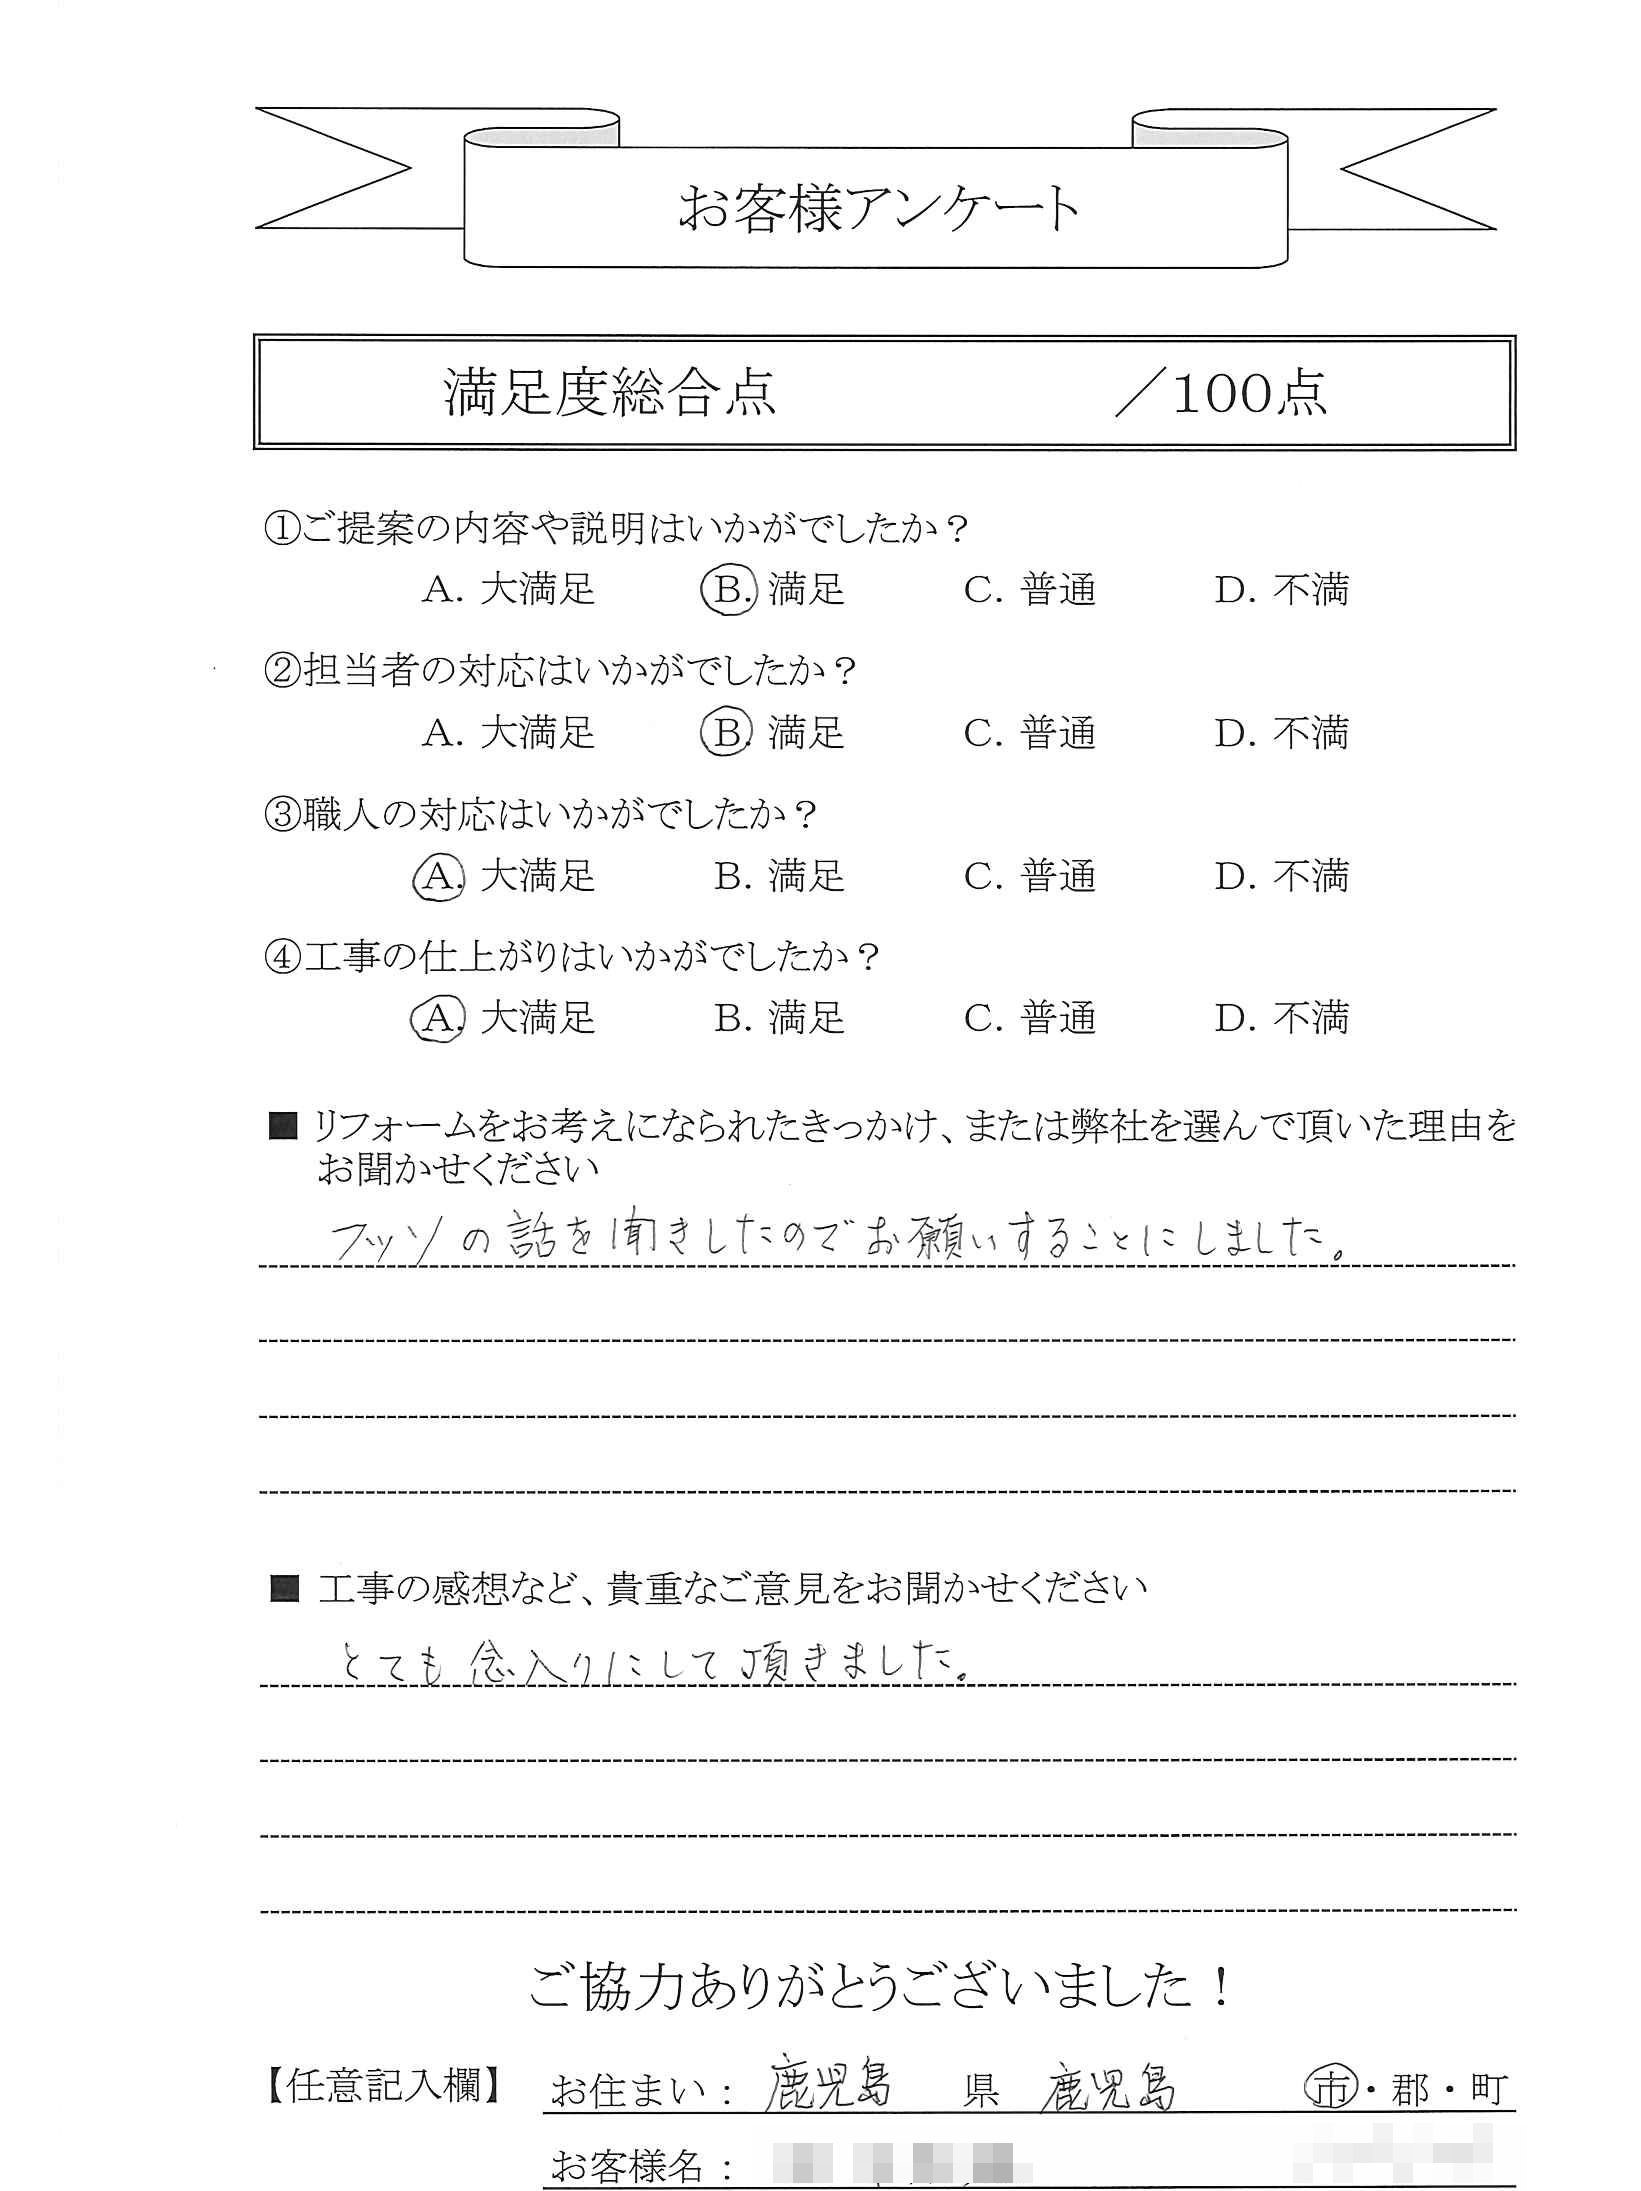 お客様アンケート
満足度総合点 ／100点
①ご提案の内容や説明はいかがでしたか？
A. 大満足 B. 満足 C. 普通 D. 不満
②担当者の対応はいかがでしたか？
A. 大満足 B. 満足 C. 普通 D. 不満
③職人の対応はいかがでしたか？
A. 大満足 B. 満足 C. 普通 D. 不満
④工事の仕上がりはいかがでしたか？
A. 大満足 B. 満足 C. 普通 D. 不満
■ リフォームをお考えになられたきっかけ、または弊社を選んで頂いた理由を
お聞かせください
フッソの話を聞きしたのでお願いすることにしました。
■ 工事の感想など、貴重なご意見をお聞かせください
とても念入りにして頂きました。
ご協力ありがとうございました！
【任意記入欄】 お住まい： 鹿児島 県 鹿児島 市・郡・町
お客様名：